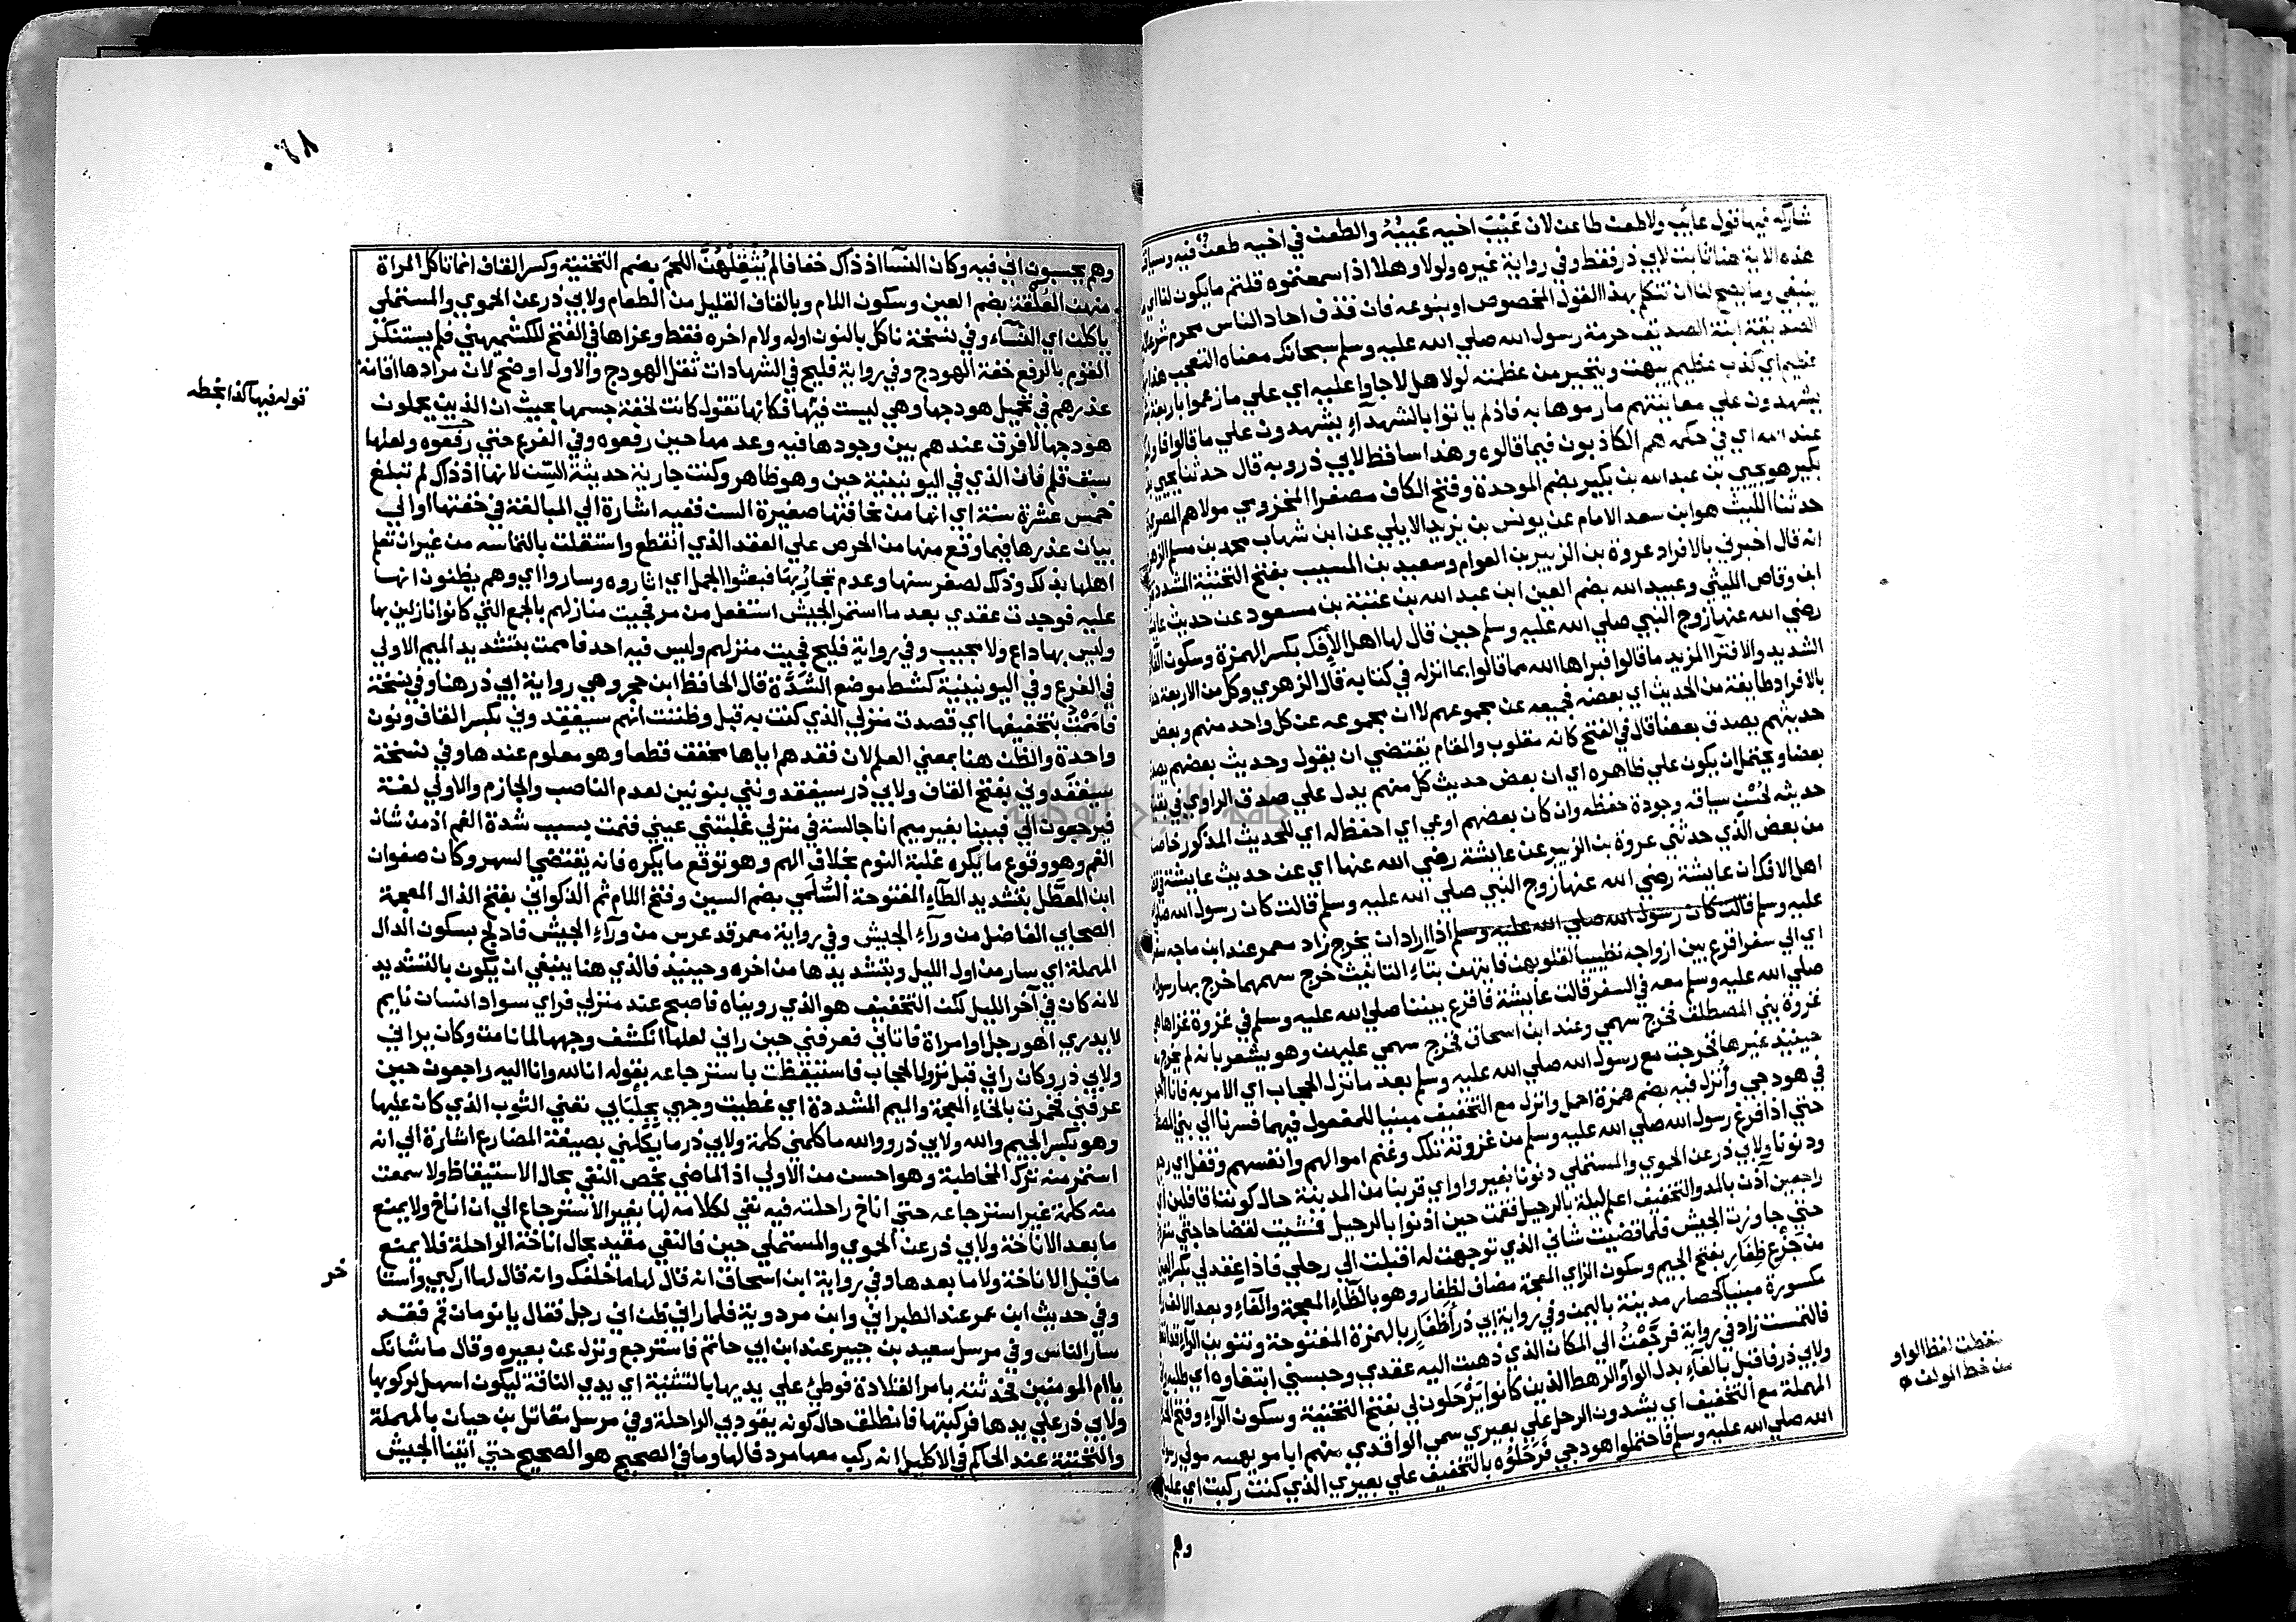 شاركه فيها قول عائب ولا طعن طاعن لان عَيْبَ اخيه عَيْبُهُ والطعن في اخيه طعنٌ فيه وسياق
هذه الاية هنا ثابت لابي ذر فقط وفي رواية غيره ولولا وهلا اذ سمعتموه قلتم ما يكون لنا اي
ينبغي وما يصح لنا ان نتكلم بهذا القول المخصوص او بنوعه فان قذف احاد الناس محرم شرعا
الصديقة ابنة الصديق حرمة رسول الله صلي الله عليه وسلم سبحانك معناه التعجب هذا
عظيم اي كذب عظيم يبهت ويتحير من عظمته لولا هلا جاوا عليه اي علي ما زعموا باربعة
يشهدون علي معاينتهم ما رموها به فاذ لم ياتوا بالشهداء يشهدون علي ما قالوا فاول
عند الله اي في حكمه هم الكاذبون فيما قالوه وهذا ساقط لابي ذر وبه قال حدثنا يحيي بن
بكير هو يحيي بن عبد الله بن بكير بضم الموحدة وفتح الكاف مصغرا المخزومي مولاهم المصري
حدثنا الليث هو ابن سعد الامام عن يونس بن يزيد الايلي عن ابن شهاب محمد بن مسلم الزهر
انه قال اخبرني بالافراد عروة بن الزبير بن العوام وسعيد بن المسيب بفتح التحتية المشددة
ابن وقاص الليثي وعبيد الله بضم العين ابن عبد الله بن عتبة بن مسعود عن حديث عائشة
رضي الله عنها زوج النبي صلي الله عليه وسلم حين قال لها اهل الافك بكسر الهمزة وسكون الفا
الشديد والافترا المزيد ما قالوا فبراها الله مما قالوا بما انزله في كتابه قال الزهري وكل من الاربعة
بالافراد طايفة من الحديث اي بعضه فجميعه عن مجموعهم لا ان مجموعه عن كل واحد منهم وبعض
حديثهم يصدق بعضا قال في الفتح كانه مقلوب والمقام يقتضي ان يقول وحديث بعضهم يصد
بعضا ويحتمل ان يكون علي ظاهره اي ان بعض حديث كل منهم يدل علي صدق الراوي في بقية
حديثه لحُسْن سياقه وجودة حفظه وان كان بعضهم اوعي اي احفظ له اي للحديث المذكور خاصة
من بعض الذي حدثني عروة بن الزبير عن عايشة رضي الله عنها اي عن حديث عايشة في
اهل الافك ان عايشة رضي الله عنها زوج النبي صلي الله عليه وسلم قالت كان رسول الله صلي
عليه وسلم قالت كان رسول الله صلي الله عليه وسلم اذا اراد ان يخرج زاد معمر عند ابن ماجه سفرا
اي الي سفر اقرع بين ازواجه تطييبا لقلوبهن فايتهن بتاء التانيث خرج سهمها خرج بها رسول
صلي الله عليه وسلم معه في السفر قالت عايشة فاقرع بيننا صلي الله عليه وسلم في غزوة غزاها
غزوة بني المصطلق فخرج سهمي وعند ابن اسحاق فخرج سهمي عليهن وهو يشعر بانه لم يخرج
حينيذ غيرها فخرجت مع رسول الله صلي الله عليه وسلم بعد ما نزل الحجاب اي الامر به فانا احمل
في هودجي وأُنزل فيه بضم همزة احمل وانزل مع التخفيف مبنيا للمفعول فيهما فسرنا الي بني المصط
حتي اذا فرغ رسول الله صلي الله عليه وسلم من غزوته تلك وغنم اموالهم وانفسهم وقفل اي رجع
ودنونا ولابي ذر عن الحموي والمستملي دنونا بغير واو اي قربنا من المدينة حال كوننا قافلين اي
راجعين آذن بالمد والتخفيف اعلم ليلة بالرحيل فقمت حين اذنوا بالرحيل فمشيت لقضا حاجتي
حتي جاوزت الجيش فلما قضيت شاني الذي توجهت له اقبلت الي رحلي فاذا عقد لي بكسر العين
من جَزْعِ ظِفَارِ بفتح الجيم وسكون الزاي المعجمة مضاف لظفار وهو بالظاء المعجمة والفاء وبعد الالف را
مكسورة مبنيا كحصار مدينة باليمن وفي رواية ابي ذر أَظْفَارٍ بالهمزة المفتوحة وتنوين الراء قد انقطع
فالتمست زاد في رواية فرجَعْتُ الي المكان الذي ذهبت اليه عقدي وحبسني ابتغاوه اي طلبه
ولابي ذر فاقبل بالفاء بدل الواو الرهط الذين كانوا يَرْحَلون لي بفتح التحتية وسكون الراء وفتح الحا
المهملة مع التخفيف اي يشدون الرحل علي بعيري سمي الواقدي منهم ابا مويهبه مولي رسول
الله صلي الله عليه وسلم فاحتملوا هودجي فَرَحَلُوْه بالتخفيف علي بعيري الذي كنت ركبت اي عليه
وهم
سقطت لفظ الواو
من خط المولف
٠٦٨
وهم يحسبون اني فيه وكان النسآ اذ ذاك خفافا لم يُثْقِلْهُنَّ اللحمُ بضم التحتية وكسر القاف انما ناكل المراة
منهن العُلْقة بضم العين وسكون اللام وبالقاف القليل من الطعام ولابي ذر عن الحموي والمستملي
ياكلن اي النساء وفي نسخة ناكل بالنون اوله ولام اخره فقط وعزاها في الفتح للكشميهني فلم يستنكر
القوم بالرفع خفة الهودج وفي رواية فليح في الشهادات ثقل الهودج والاول اوضح لان مرادها اقامة
عذرهم في تحميل هودجها وهي ليست فيها فكانها تقول كانت لخفة جسمها بحيث ان الذين يحملون
هودجها لا فرق عندهم بين وجودها فيه وعدمها حين رفعوه وفي الفرع حتي رفعوه ولعلها
سبق قلم فان الذي في اليونينية حين وهو ظاهر وكنت جارية حديثة السن لانها اذ ذاك لم تبلغ
خمس عشرة سنة اي انها من نحافتها صغيرة السن ففيه اشارة الي المبالغة في خفتها او الي
بيان عذرها فيما وقع منها من الحرص علي العقد الذي انقطع واستقلت بالتماسه من غير ان تعلم
اهلها بذلك وذلك لصغر سنها وعدم تجارُبها فبعثوا الجمل اي اثاروه وساروا اي وهم يظنون انها
عليه فوجدت عقدي بعد ما استمر الجيش استفعل من مر فجيت منازلهم بالجمع التي كانوا نازلين بها
وليس بها داع ولا مجيب وفي رواية فليح فجيت منزلهم وليس فيه احد فاممت بتشديد الميم الاولي
في الفرع وفي اليونينية كشط موضع الشَّدَّة قال الحافظ ابن حجر وهي رواية ابي ذر هنا وفي نسخة
فامَمْتُ بتخفيفها اي قصدت منزلي الذي كنت به قبل وظننت انهم سيفقِدوني بكسر القاف ونون
واحدة والظن هنا بمعني العلم لان فقدهم اياها محقق قطعا وهو معلوم عندها وفي نسخة
سيفقَدوني بفتح القاف ولابي ذر سيفقدونني بنونين لعدم الناصب والجازم والاولي لغة
فيرجعون الي فبينا بغير ميم انا جالسة في منزلي غلبتني عيني فنمت بسبب شدة الغم اذ من شان
الغم وهو وقوع ما يكره غلبة النوم بخلاف الهم وهو توقع ما يكره فانه يقتضي السهر وكان صفوان
ابن المعطَّل بتشديد الطآء المفتوحة السُّلَمي بضم السين وفتح اللام ثم الذكواني بفتح الذال المعجمة
الصحابي الفاضل من ورآء الجيش وفي رواية معمر قد عرس من ورآء الجيش فادلج بسكون الدال
المهملة اي سار من اول الليل وبتشديدها من اخره وحينيذ فالذي هنا ينبغي ان يكون بالتشديد
لانه كان في آخر الليل لكن التخفيف هو الذي رويناه فاصبح عند منزلي فراي سواد انسان نايم
لا يدري اهو رجل او امراة فاتاني فعرفني حين راني لعلها انكشف وجهها لما نامت وكان يراني
ولابي ذر وكان راني قبل نزول الحجاب فاستيقظت باسترجاعه بقوله انا لله وانا اليه راجعون حين
عرفني فخمرت بالخاء المعجمة والميم المشددة اي غطيت وجهي بِجِلْبَابي تعني الثوب الذي كان عليها
وهو بكسر الجيم والله ولابي ذر ووالله ما كلمني كلمة ولابي ذر ما يكلمني بصيغة المضارع اشارة الي انه
استمر منه ترك المخاطبة وهو احسن من الاولي اذ الماضي يخص النفي بحال الاستيقاظ ولا سمعت
منه كلمة غير استرجاعه حتي اناخ راحلته فيه نفي لكلامه لها بغير الاسترجاع الي ان اناخ ولا يمنع
ما بعد الاناخة ولابي ذر عن الحموي والمستملي حين فالنفي مقيد بحال اناخة الراحلة فلا يمنع
ما قبل الاناخة ولا ما بعدها وفي رواية ابن اسحاق انه قال لها ما خلفك وانه قال لها اركبي واستا
وفي حديث ابن عمر عند الطبراني وابن مردوية فلما راني ظن اني رجل فقال يا نومان قم فقد
سار الناس وفي مرسل سعيد بن جبير عند ابن ابي حاتم فاسترجع ونزل عن بعيره وقال ما شانك
يا ام المومنين فحدثته بامر القلادة فوطئ علي يديها بالتثنية اي يدي الناقة ليكون اسهل لركوبها
ولابي ذر علي يدها فركبتها فانطلق حال كونه يقود بي الراحلة وفي مرسل مقاتل بن حيان بالمهملة
والتحتية عند الحاكم في الاكليل انه ركب معها مردفا لها وما في الصحيح هو الصحيح حتي اتينا الجيش
قوله فيها كذا بخطه
خر